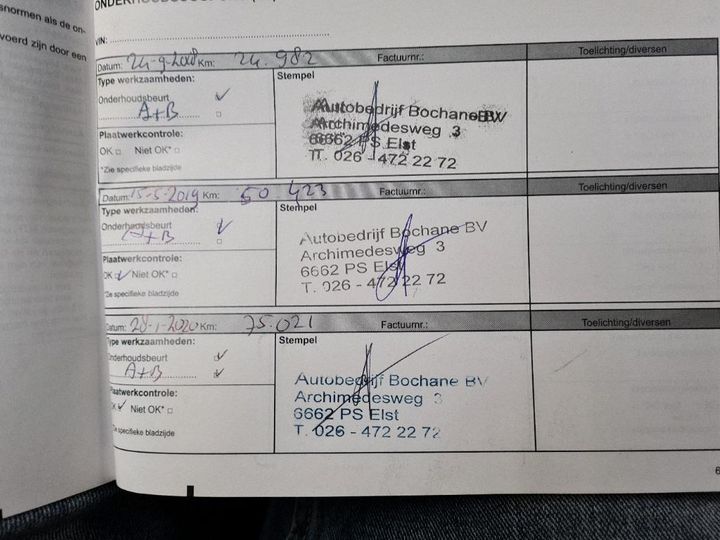 snormen als de on-
voerd zijn door een
VIN:
Datum: 24-9-2018 Km: 24.982 Factuurnr.: Toelichting/diversen
Type werkzaamheden: Stempel
Onderhoudsbeurt
A+B
Plaatwerkcontrole:
OK Niet OK*
*Zie specifieke bladzijde
Autobedrijf Bochane BV
Archimedesweg 3
6662 PS Elst
T. 026 - 472 22 72
Datum: 15-5-2019 Km: 50 423 Factuurnr.: Toelichting/diversen
Type werkzaamheden: Stempel
Onderhoudsbeurt
A+B
Plaatwerkcontrole:
OK Niet OK*
Zie specifieke bladzijde
Autobedrijf Bochane BV
Archimedesweg 3
6662 PS Elst
T. 026 - 472 22 72
Datum: 28-1-2020 Km: 75.021 Factuurnr.: Toelichting/diversen
Type werkzaamheden: Stempel
Onderhoudsbeurt
A+B
Plaatwerkcontrole:
OK Niet OK*
Zie specifieke bladzijde
Autobedrijf Bochane BV
Archimedesweg 3
6662 PS Elst
T. 026 - 472 22 72
6